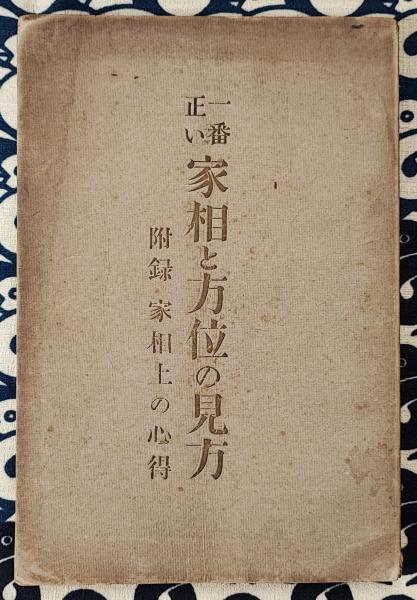 一番
正い
家相と方位の見方
附録 家相上の心得